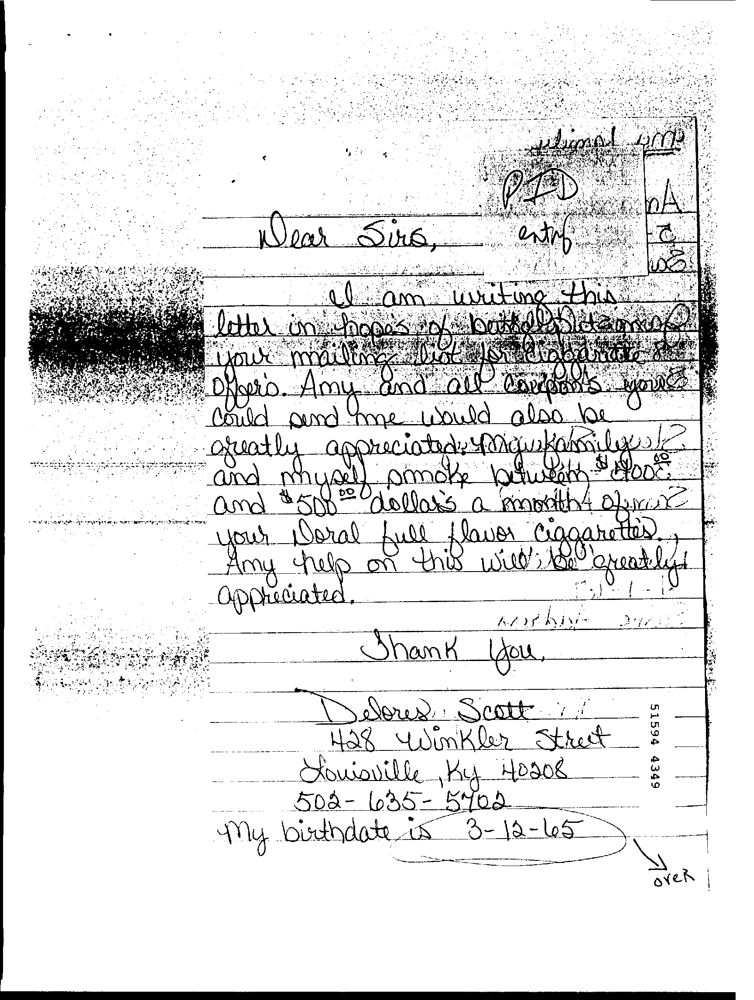 PID
entry
Dear Sirs,
I am writing this
letter in hopes of
your mailing list for
offers. Any and all coupons you
could send me would also be
greatly appreciated. My family
and myself smoke between $400
and $500 00 dollars a month of
your Doral full flavor ciggarettes.
Any help on this will be greatly
appreciated.
Thank You,
Delores Scott
428 Winkler Street
Louisville, Ky 40208
502-635-5702
My birthdate is 3-12-65
over
51594 4349